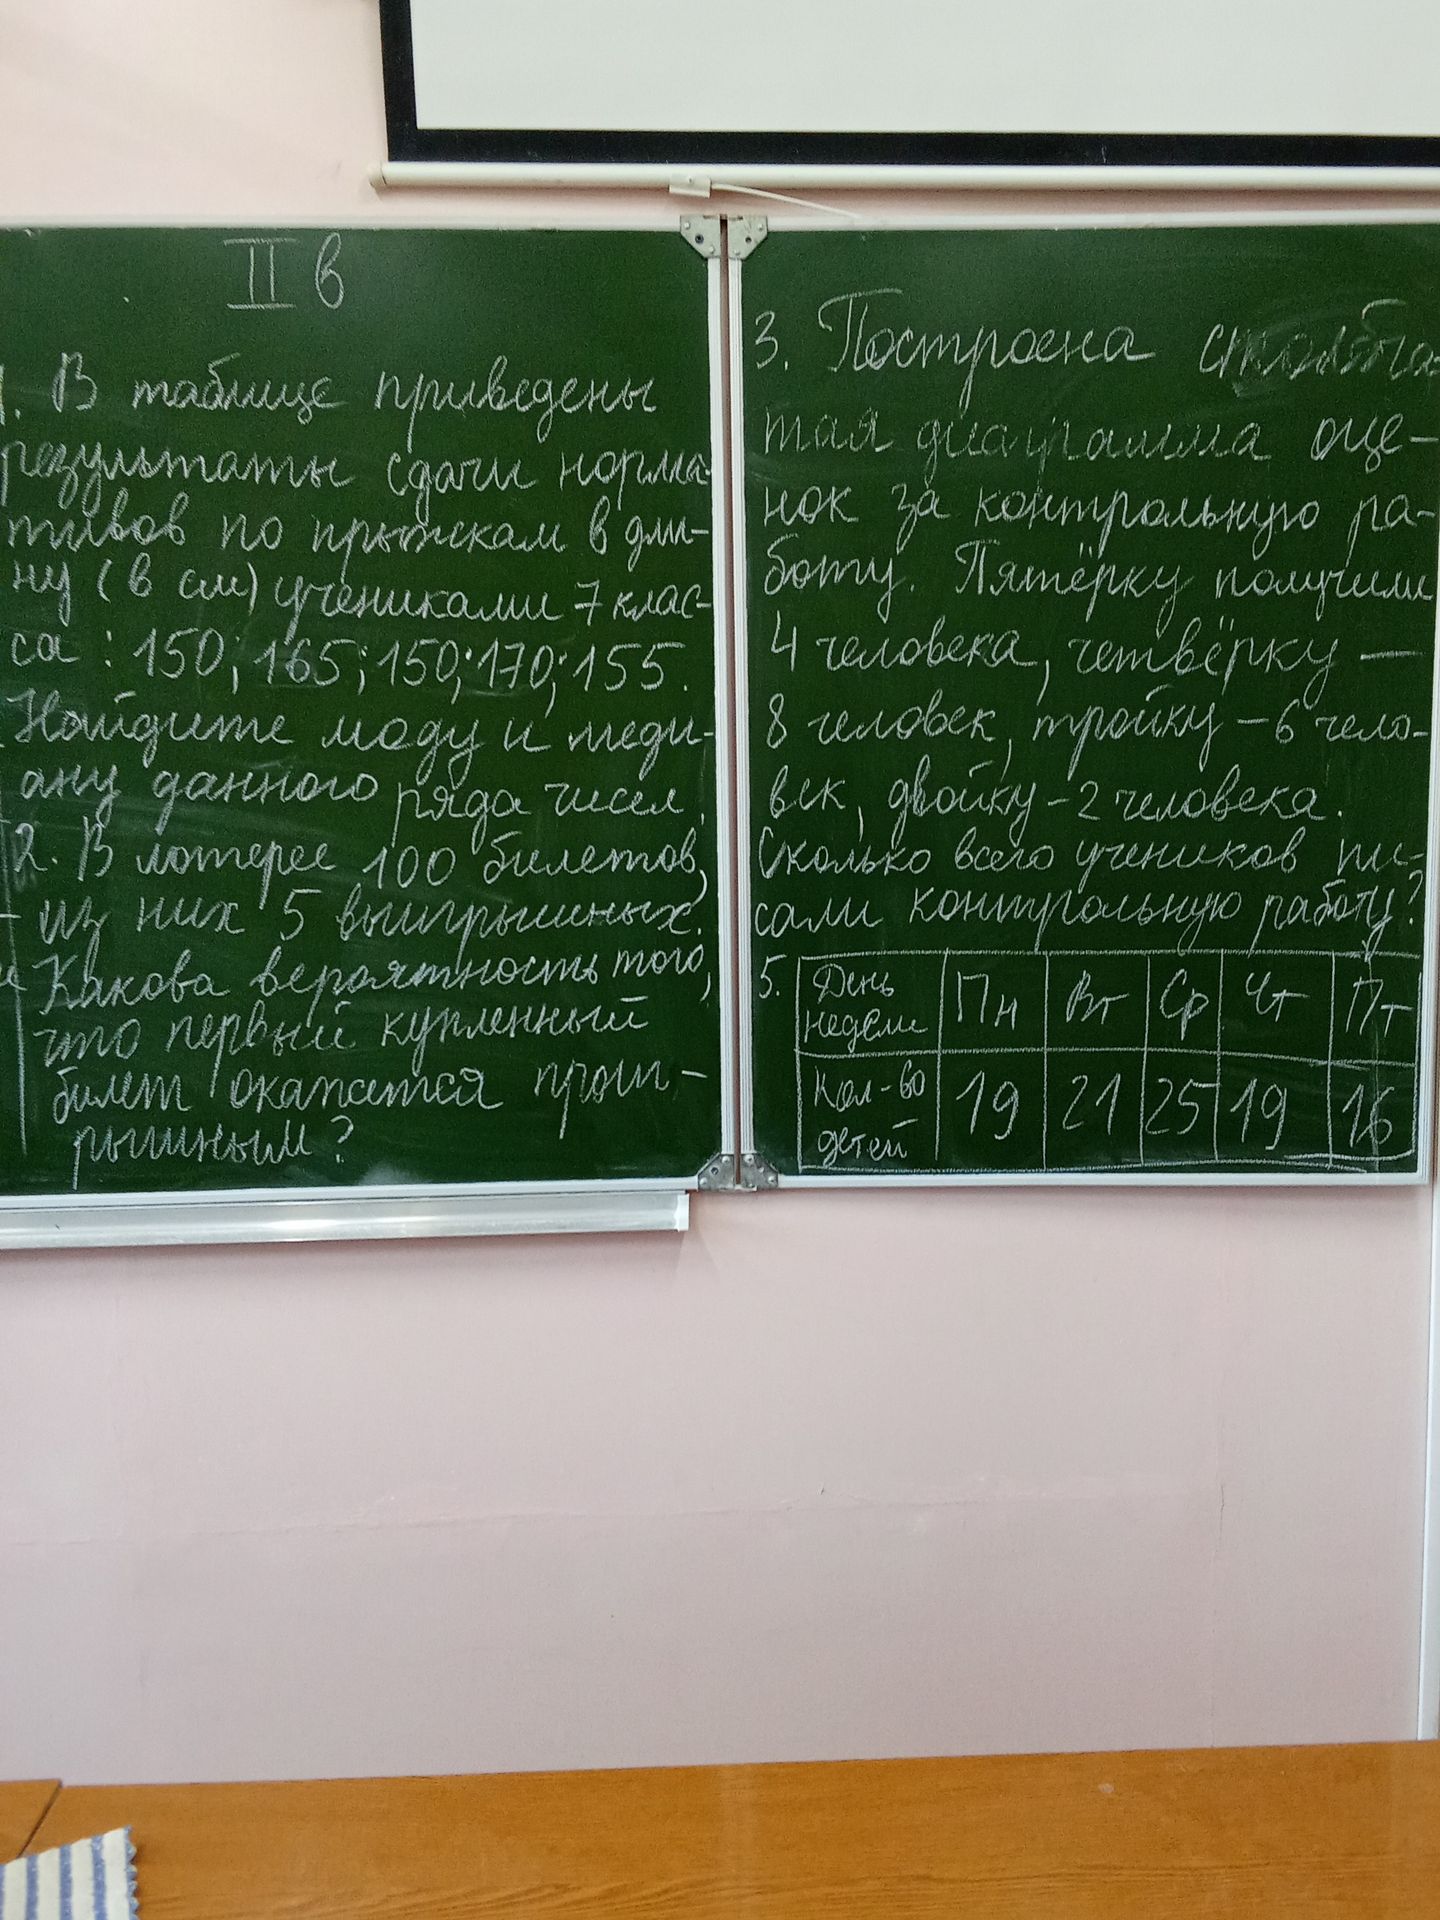 II в
1. В таблице приведены
результаты сдачи норма-
тивов по прыжкам в дли-
ну (в см) учениками 7 клас-
са : 150; 165; 150; 170; 155.
Найдите моду и меди-
ану данного ряда чисел.
2. В лотерее 100 билетов,
из них 5 выигрышных.
Какова вероятность того,
что первый купленный
билет окажется проиг-
рышным?
3. Построена столбча-
тая диаграмма оце-
нок за контрольную ра-
боту. Пятёрку получили
4 человека, четвёрку —
8 человек, тройку - 6 чело-
век, двойку - 2 человека.
Сколько всего учеников пи-
сали контрольную работу?
5. День недели Пн Вт Ср Чт Пт
Кол-во детей 19 21 25 19 16